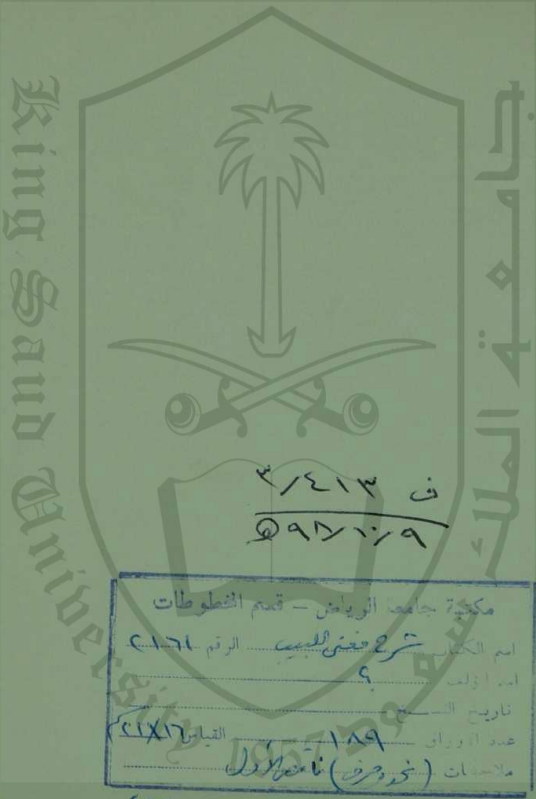 King Saud University
جامعة الملك سعود
1957
ف ٤١٣/٣
٩٨/١٠/٩ هـ
مكتبة جامعة الرياض - قسم المخطوطات
اسم الكتاب شرح مغني اللبيب الرقم ٢١٦١
اسم المؤلف ؟
تاريخ النسخ
عدد الأوراق ١٨٩ القياس ٢١X١٦ سم
ملاحظات (نحو وصرف) ناقص الأول